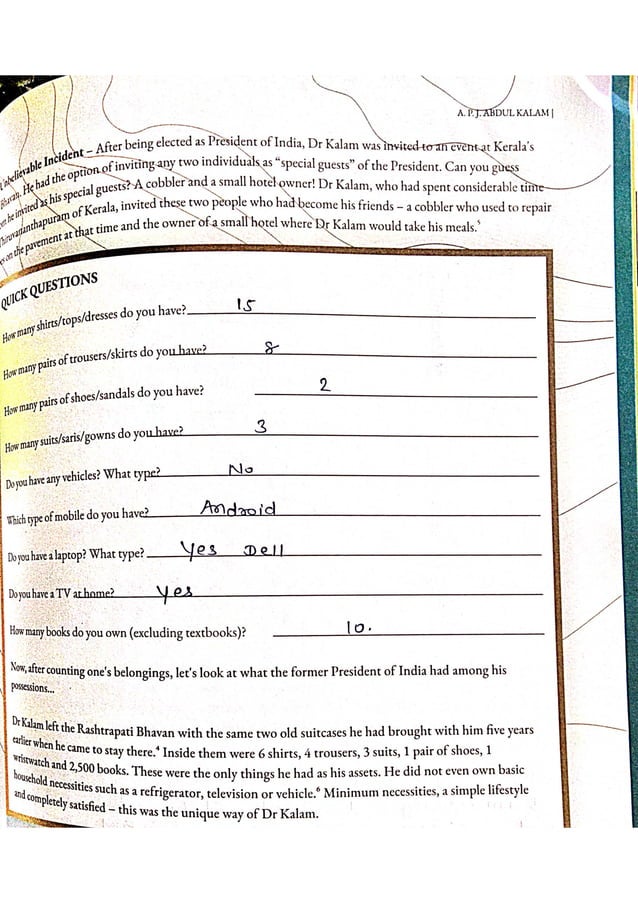 A. P. J. ABDUL KALAM |
Unbelievable Incident – After being elected as President of India, Dr Kalam was invited to an event at Kerala's
Bhavan. He had the option of inviting any two individuals as “special guests” of the President. Can you guess
he invited as his special guests? A cobbler and a small hotel owner! Dr Kalam, who had spent considerable time
Thiruvananthapuram of Kerala, invited these two people who had become his friends – a cobbler who used to repair
on the pavement at that time and the owner of a small hotel where Dr Kalam would take his meals.⁵
QUICK QUESTIONS
How many shirts/tops/dresses do you have? 15
How many pairs of trousers/skirts do you have? 8
How many pairs of shoes/sandals do you have? 2
How many suits/saris/gowns do you have? 3
Do you have any vehicles? What type? No
Which type of mobile do you have? Android
Do you have a laptop? What type? Yes Dell
Do you have a TV at home? Yes
How many books do you own (excluding textbooks)? 10.
Now, after counting one's belongings, let's look at what the former President of India had among his
possessions...
Dr Kalam left the Rashtrapati Bhavan with the same two old suitcases he had brought with him five years
earlier when he came to stay there.⁴ Inside them were 6 shirts, 4 trousers, 3 suits, 1 pair of shoes, 1
wristwatch and 2,500 books. These were the only things he had as his assets. He did not even own basic
household necessities such as a refrigerator, television or vehicle.⁶ Minimum necessities, a simple lifestyle
and completely satisfied – this was the unique way of Dr Kalam.